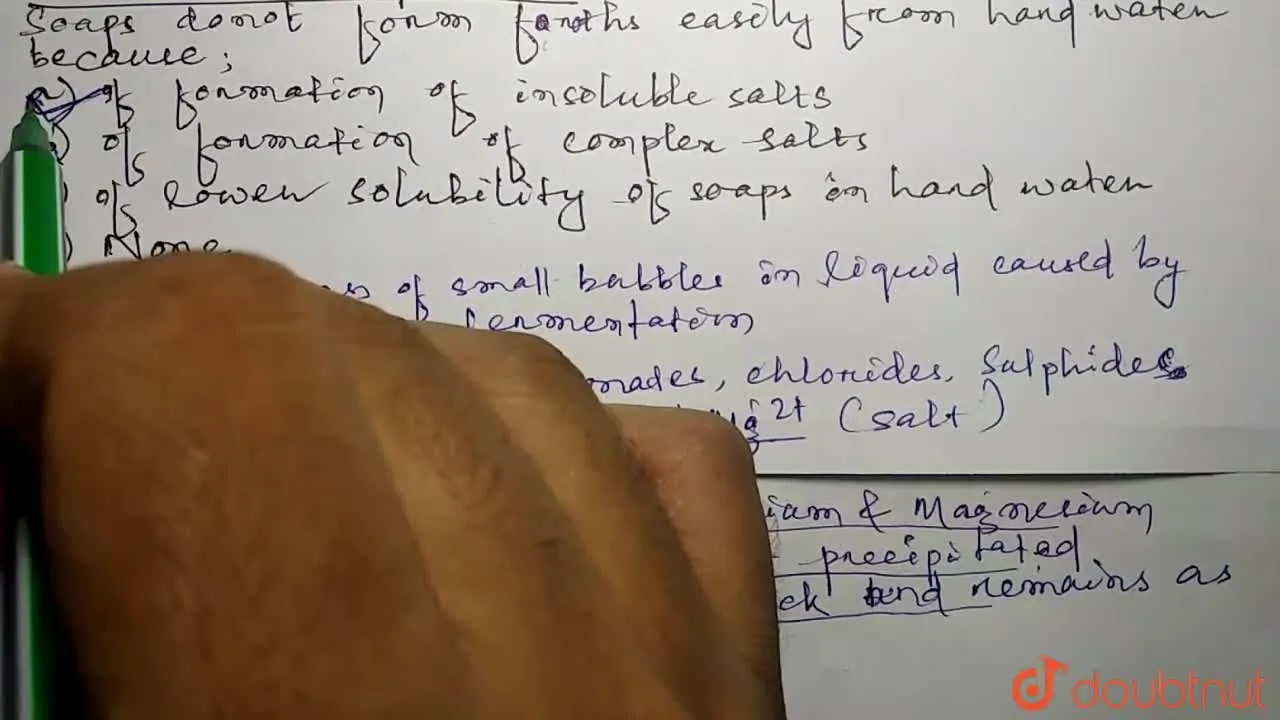 Soaps donot form froths easily from hard water
because;
a) of formation of insoluble salts
of formation of complex salts
) of lower solubility of soaps in hard water
) None
of small babbles in liquid caused by
fermentation
chlorides, Sulphides
2+ (salt)
& Magnesium
precipitated
and remains as
doubtnut